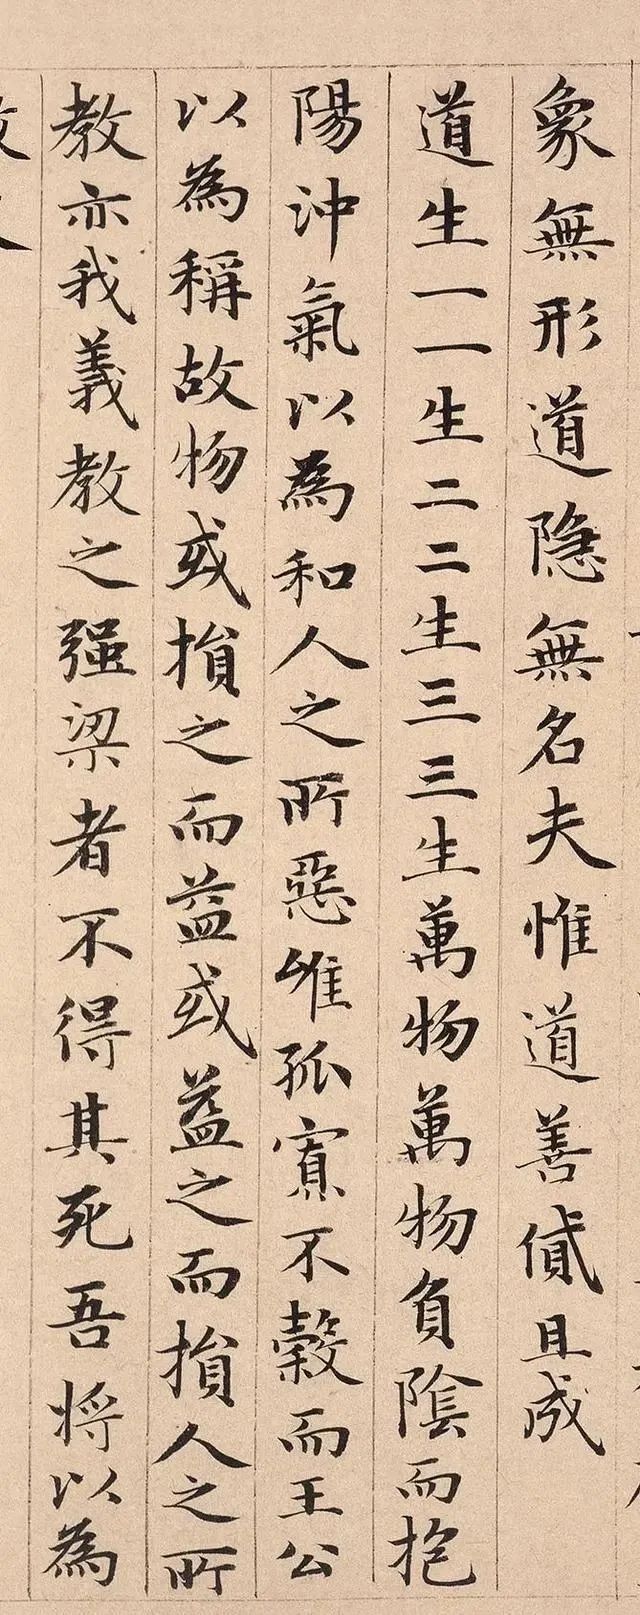 象無形道隐無名夫惟道善貸且成
道生一一生二二生三三生萬物萬物負陰而抱
陽沖氣以為和人之所惡唯孤寡不穀而王公
以為稱故物或損之而益或益之而損人之所
教亦我義教之强梁者不得其死吾将以為
教父